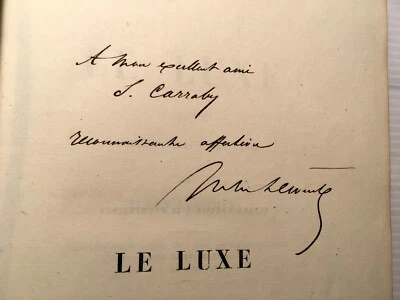 A mon excellent ami
S. Carraby
reconnaissante affection
LE LUXE